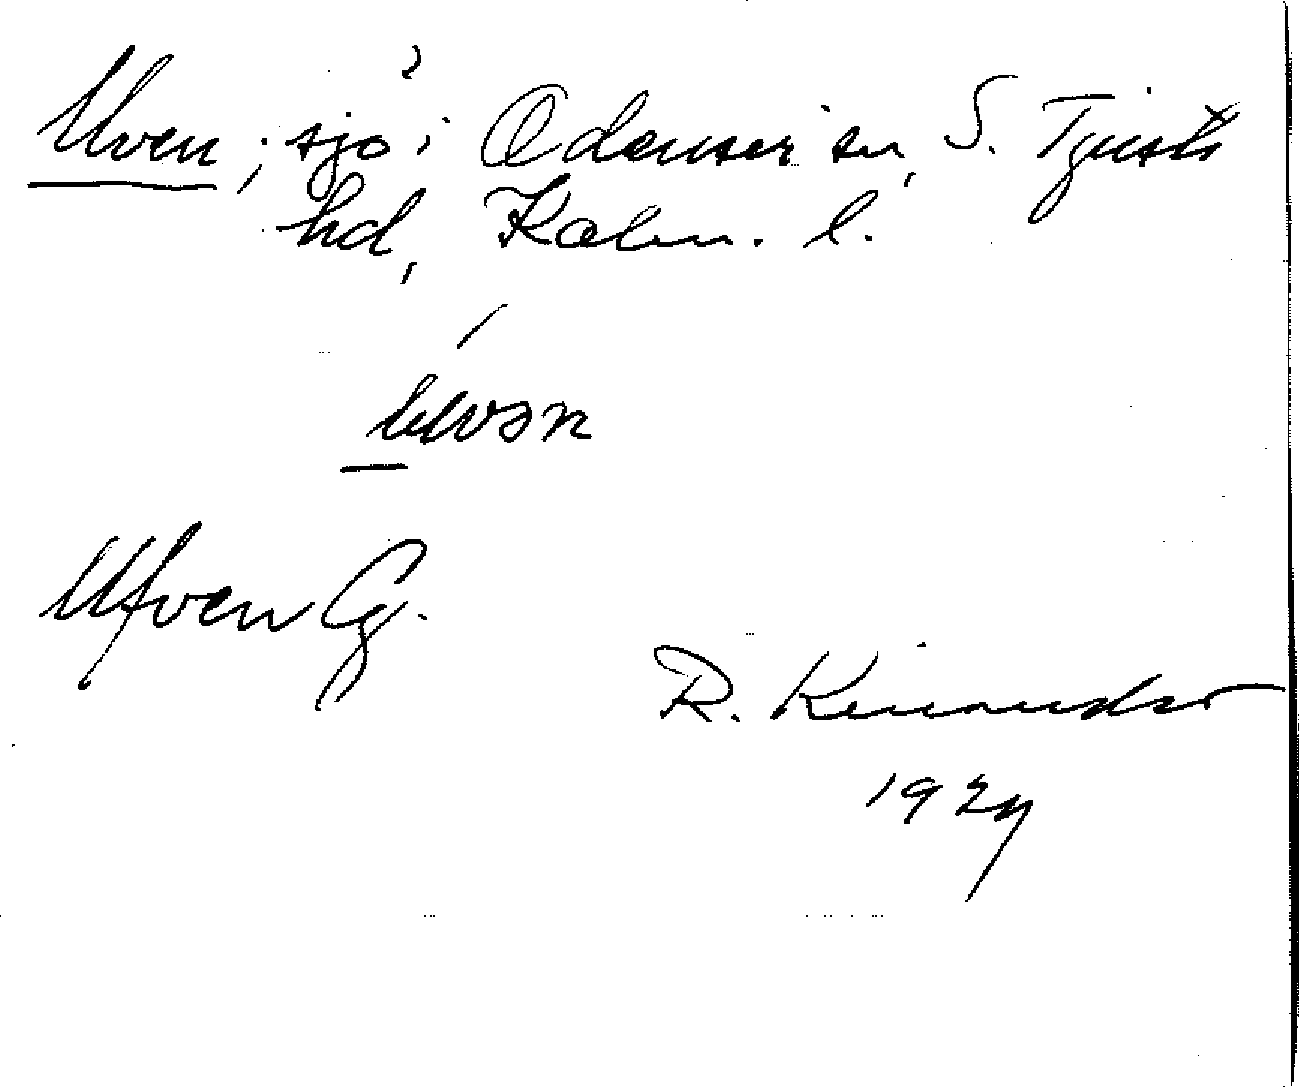 Uven, sjö i Odensvi sn, S. Tjusts
hd, Kalm. l.
uvən
Ufven Cg.
R. Kinander
1927